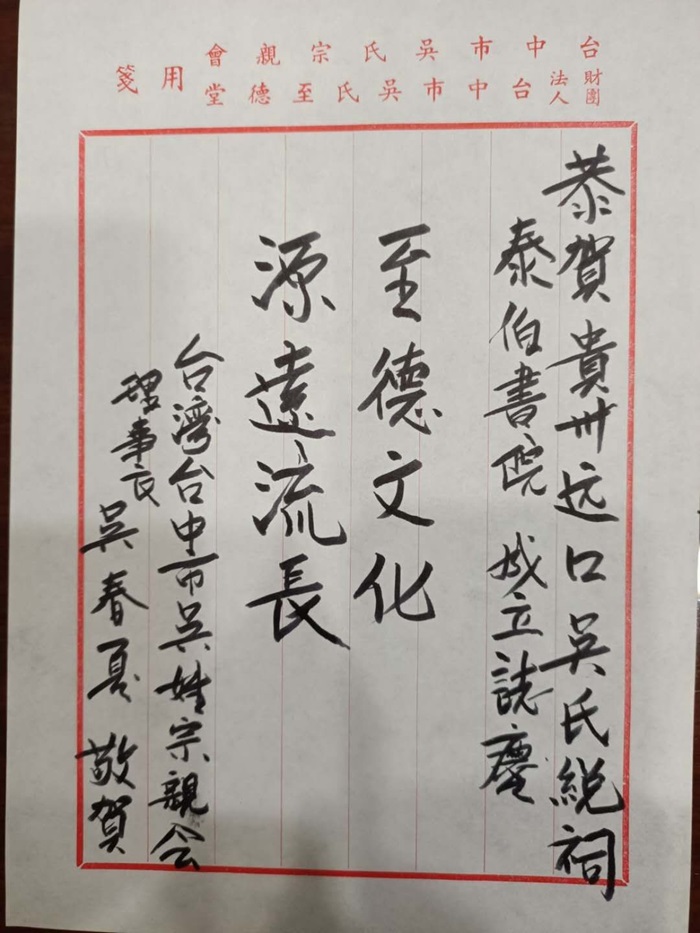 台中市吳氏宗親會
財團法人台中市吳氏至德堂
用箋
恭賀貴州远口吳氏総祠
泰伯書院 成立誌慶
至德文化
源遠流長
台灣台中市吳姓宗親会
理事長 吳春夏 敬賀